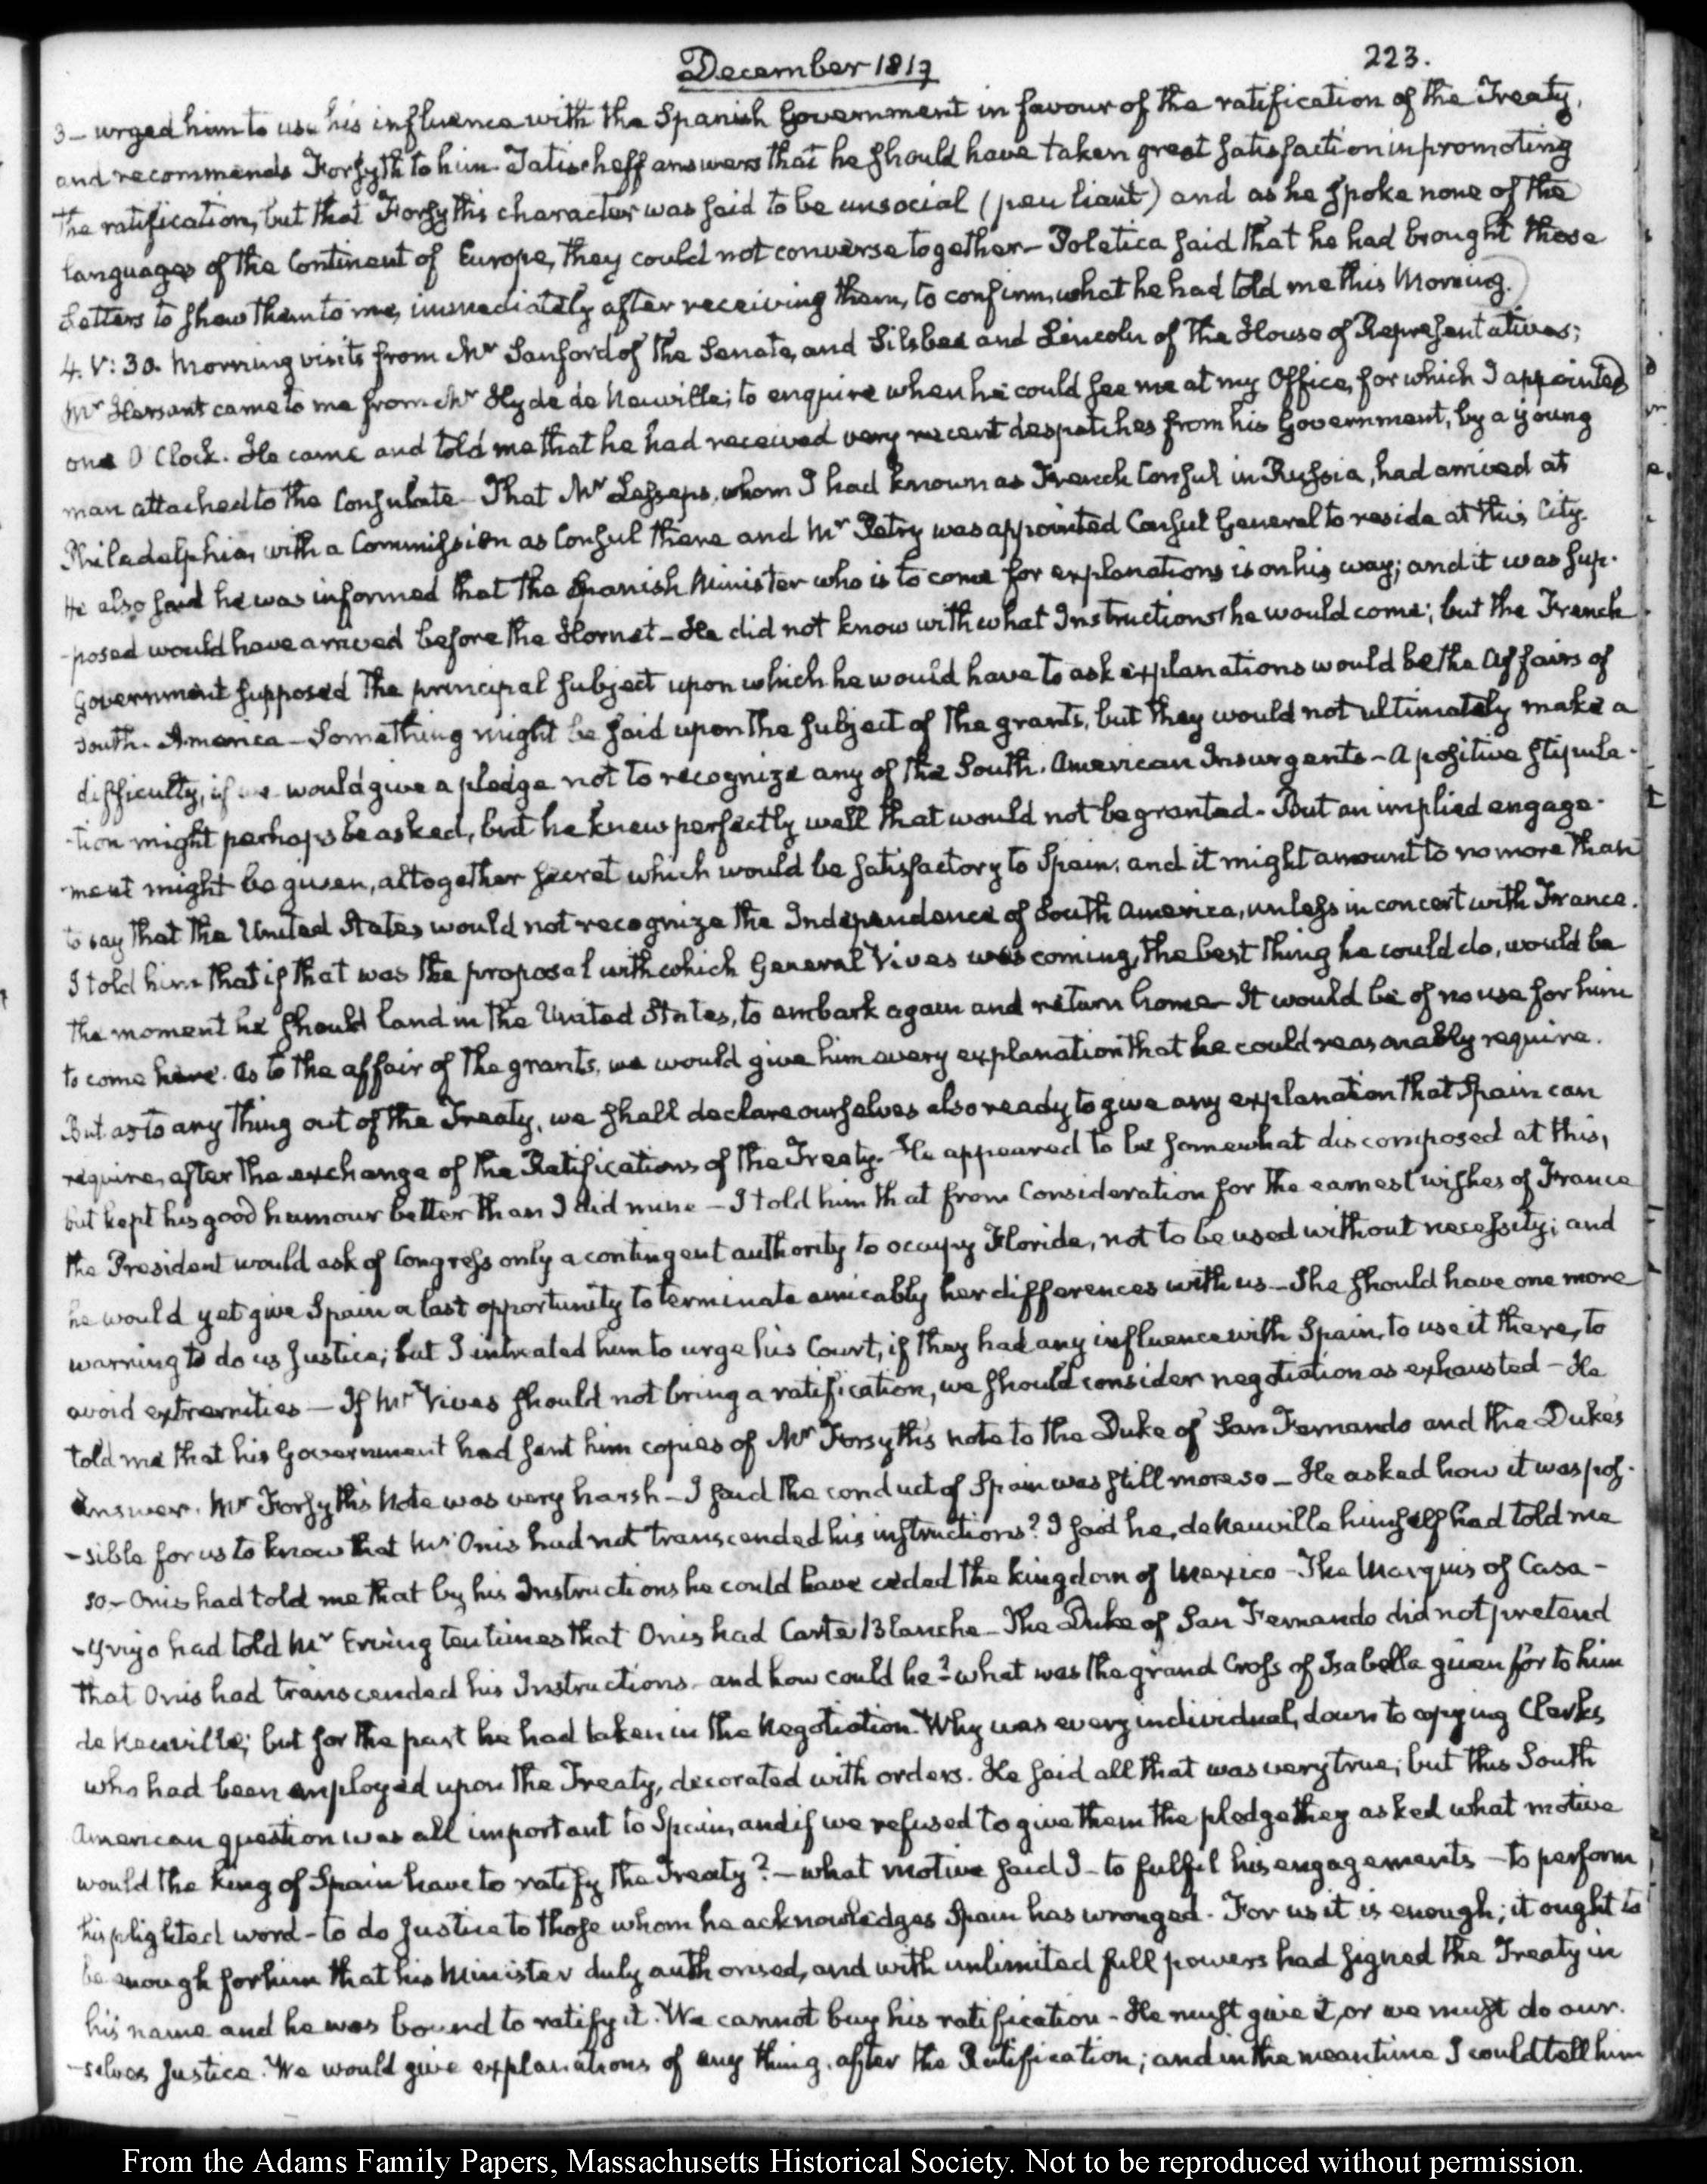 December 1819
223.
3 – urged him to use his influence with the Spanish Government in favour of the ratification of the Treaty,
and recommends Forsyth to him. Tatischeff answers that he should have taken great satisfaction in promoting
the ratification, but that Forsyth's character was said to be unsocial (peu liant) and as he spoke none of the
languages of the Continent of Europe, they could not converse together – Poletica said that he had brought these
Letters to shew them to me, immediately after receiving them, to confirm what he had told me this Morning.
4. V: 30. Morning visits from Mr Sanford of the Senate, and Silsbee and Lincoln of the House of Representatives;
Mr Hersant came to me from Mr Hyde de Neuville; to enquire when he could see me at my Office, for which I appointed
one O'Clock. He came and told me that he had received very recent despatches from his Government, by a young
man attached to the Consulate – That Mr Lesseps, whom I had known as French Consul in Russia, had arrived at
Philadelphia, with a Commission as Consul there and Mr Petry was appointed Consul General to reside at this City.
He also said he was informed that the Spanish Minister who is to come for explanations is on his way; and it was sup-
-posed would have arrived before the Hornet – He did not know with what Instructions he would come; but the French
Government supposed the principal subject upon which he would have to ask explanations would be the affairs of
South-America – Something might be said upon the subject of the grants, but they would not ultimately make a
difficulty, if we would give a pledge not to recognize any of the South-American Insurgents – A positive stipula-
-tion might perhaps be asked, but he knew perfectly well that would not be granted – But an implied engage-
-ment might be given, altogether secret which would be satisfactory to Spain, and it might amount to no more than
to say that the United States would not recognize the Independence of South America, unless in concert with France.
I told him that if that was the proposal with which General Vives was coming, the best thing he could do, would be
the moment he should land in the United States, to embark again and return home – It would be of no use for him
to come here. As to the affair of the grants, we would give him every explanation that he could reasonably require.
But as to any thing out of the Treaty, we shall declare ourselves also ready to give any explanation that Spain can
require, after the exchange of the Ratifications of the Treaty. He appeared to be somewhat discomposed at this,
but kept his good humour better than I did mine – I told him that from Consideration for the earnest wishes of France
the President would ask of Congress only a contingent authority to occupy Florida, not to be used without necessity; and
he would yet give Spain a last opportunity to terminate amicably her differences with us – She should have one more
warning to do us Justice; but I intreated him to urge his Court, if they had any influence with Spain, to use it there, to
avoid extremities – If Mr Vives should not bring a ratification, we should consider negotiation as exhausted – He
told me that his Government had sent him copies of Mr Forsyth's note to the Duke of San Fernando and the Duke's
Answer. Mr Forsyth's Note was very harsh – I said the conduct of Spain was still more so – He asked how it was pos-
-sible for us to know that Mr Onis had not transcended his instructions? I said he, de Neuville himself had told me
so – Onis had told me that by his Instructions he could have ceded the kingdom of Mexico – The Marquis of Casa-
-Yrujo had told Mr Erving ten times that Onis had Carte Blanche – The Duke of San Fernando did not pretend
that Onis had transcended his Instructions – and how could he? what was the grand Cross of Isabella given for to him
de Neuville; but for the part he had taken in the Negotiation. Why was every individual, down to copying Clerks,
who had been employed upon the Treaty, decorated with orders. He said all that was very true; but this South
American question was all important to Spain, and if we refused to give them the pledge they asked what motive
would the King of Spain have to ratify the Treaty? – what motive said I – to fulfil his engagements – to perform
his plighted word – to do Justice to those whom he acknowledges Spain has wronged – For us it is enough; it ought to
be enough for him that his Minister duly authorised, and with unlimited full powers had signed the Treaty in
his name and he was bound to ratify it. We cannot buy his ratification – He must give it, or we must do our-
-selves Justice. We would give explanations of any thing, after the Ratification; and in the meantime I could tell him
From the Adams Family Papers, Massachusetts Historical Society. Not to be reproduced without permission.